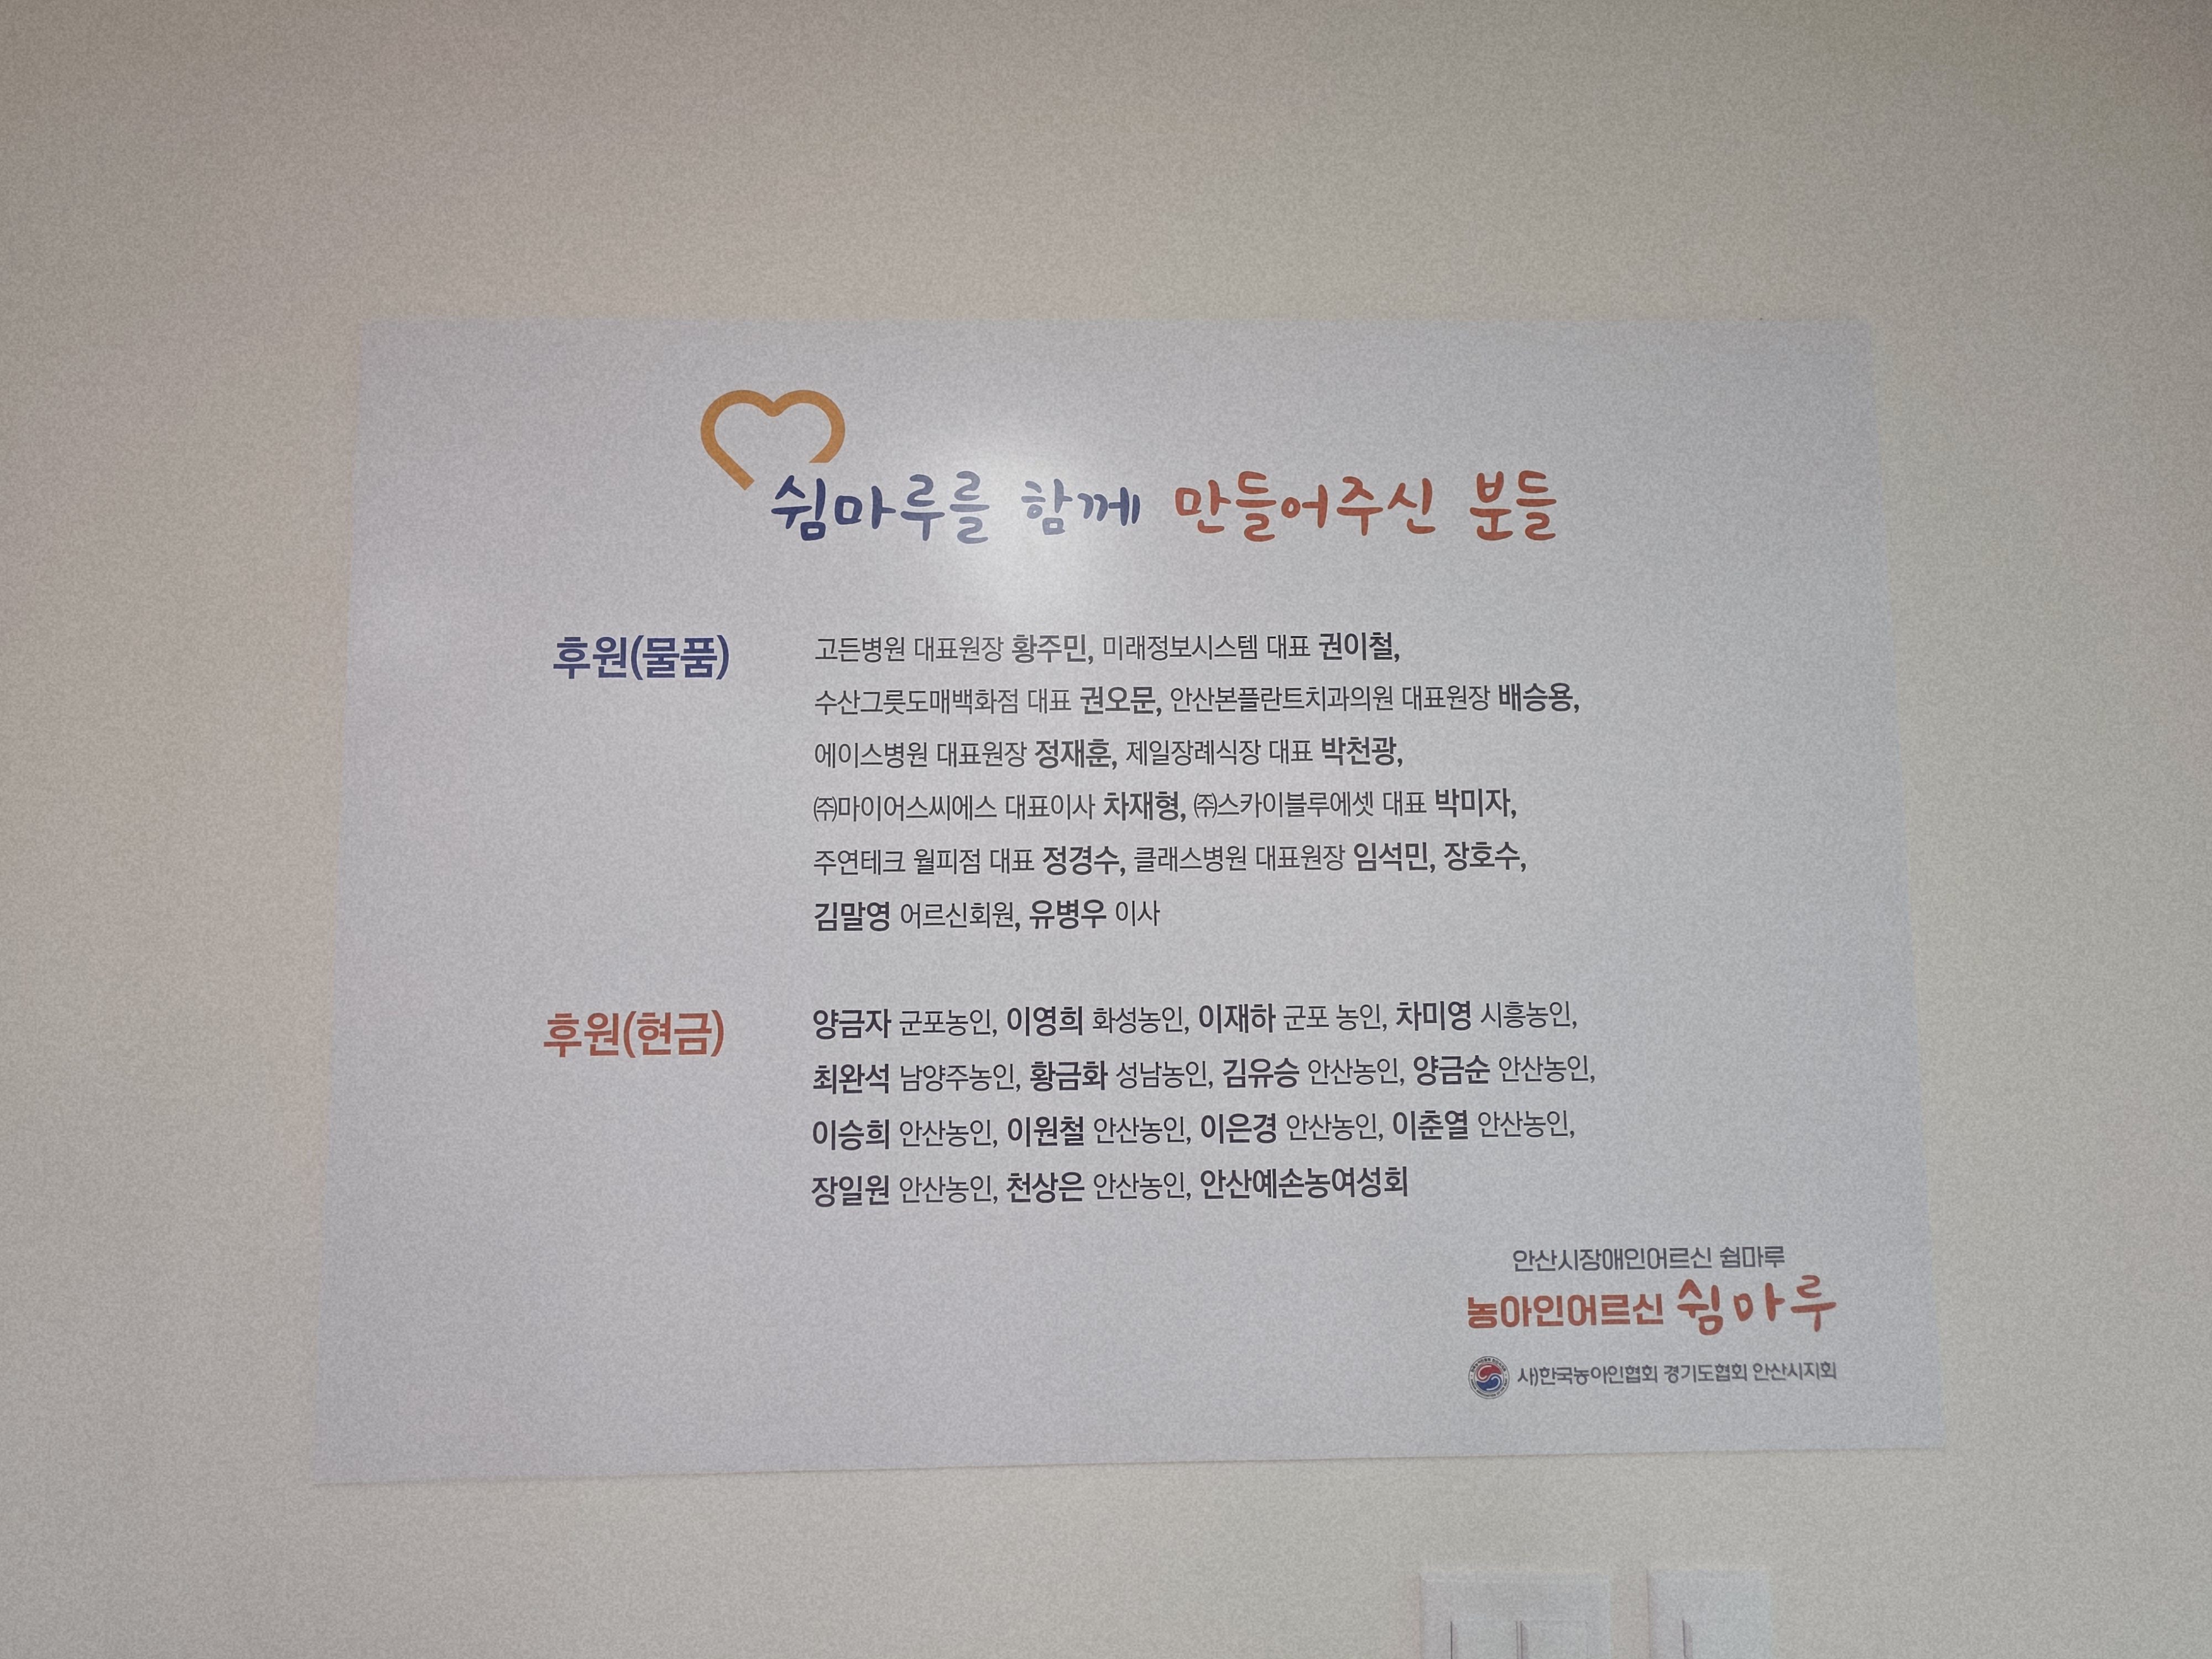 쉼마루를 함께 만들어주신 분들
후원(물품)
고든병원 대표원장 황주민, 미래정보시스템 대표 권이철,
수산그릇도매백화점 대표 권오문, 안산본플란트치과의원 대표원장 배승용,
에이스병원 대표원장 정재훈, 제일장례식장 대표 박천광,
㈜마이어스씨에스 대표이사 차재형, ㈜스카이블루에셋 대표 박미자,
주연테크 월피점 대표 정경수, 클래스병원 대표원장 임석민, 장호수,
김말영 어르신회원, 유병우 이사
후원(현금)
양금자 군포농인, 이영희 화성농인, 이재하 군포 농인, 차미영 시흥농인,
최완석 남양주농인, 황금화 성남농인, 김유승 안산농인, 양금순 안산농인,
이승희 안산농인, 이원철 안산농인, 이은경 안산농인, 이춘열 안산농인,
장일원 안산농인, 천상은 안산농인, 안산예손농여성회
안산시장애인어르신 쉼마루
농아인어르신 쉼마루
사)한국농아인협회 경기도협회 안산시지회